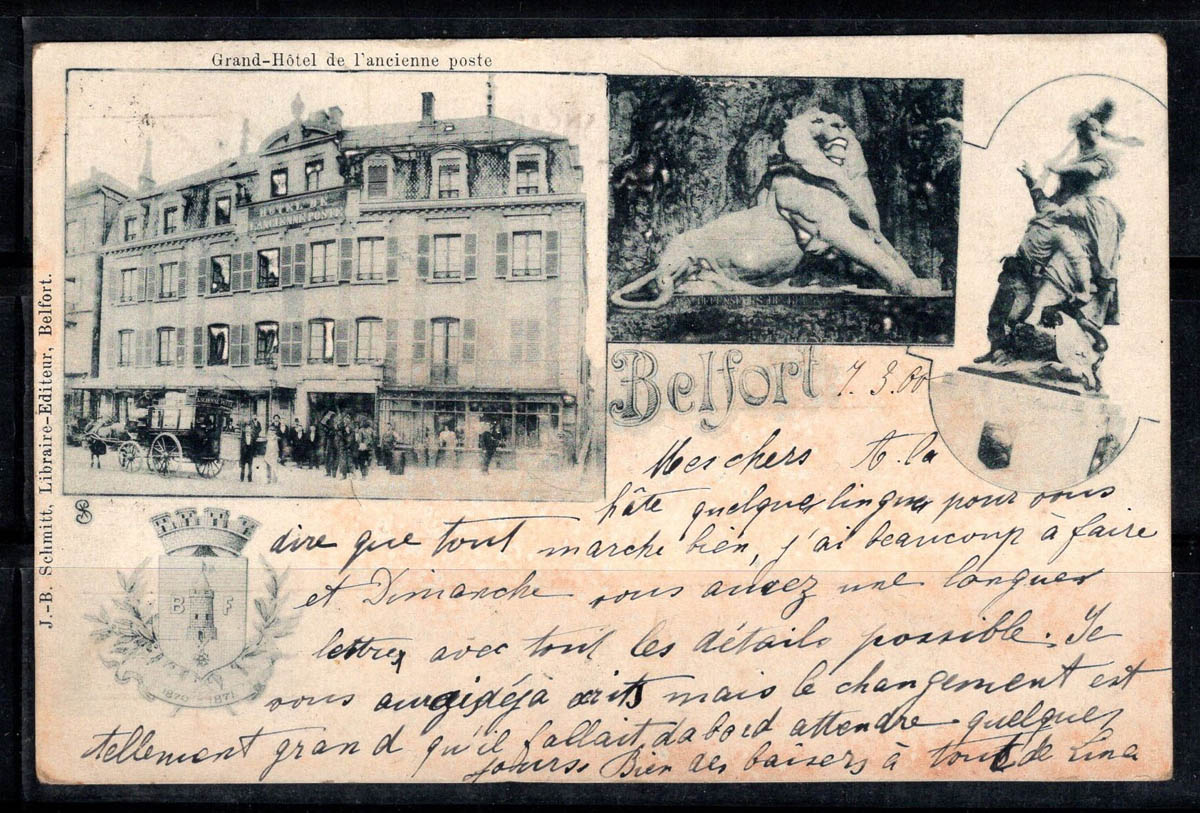 Grand-Hôtel de l'ancienne poste
HÔTEL DE
L'ANCIENNE POSTE
J.-B. Schmitt, Libraire-Editeur, Belfort.
Belfort 7.3.00
Mes chers A la
hâte quelques lingues pour vous
dire que tout marche bien, j'ai beaucoup à faire
et Dimanche vous aurez une longues
lettre avec tout les détails possible. Je
vous aurais déjà écrits mais le changement est
tellement grand qu'il fallait dabord attendre quelques
jours. Bien des baisers à tout de Lina
B F
1870-1871